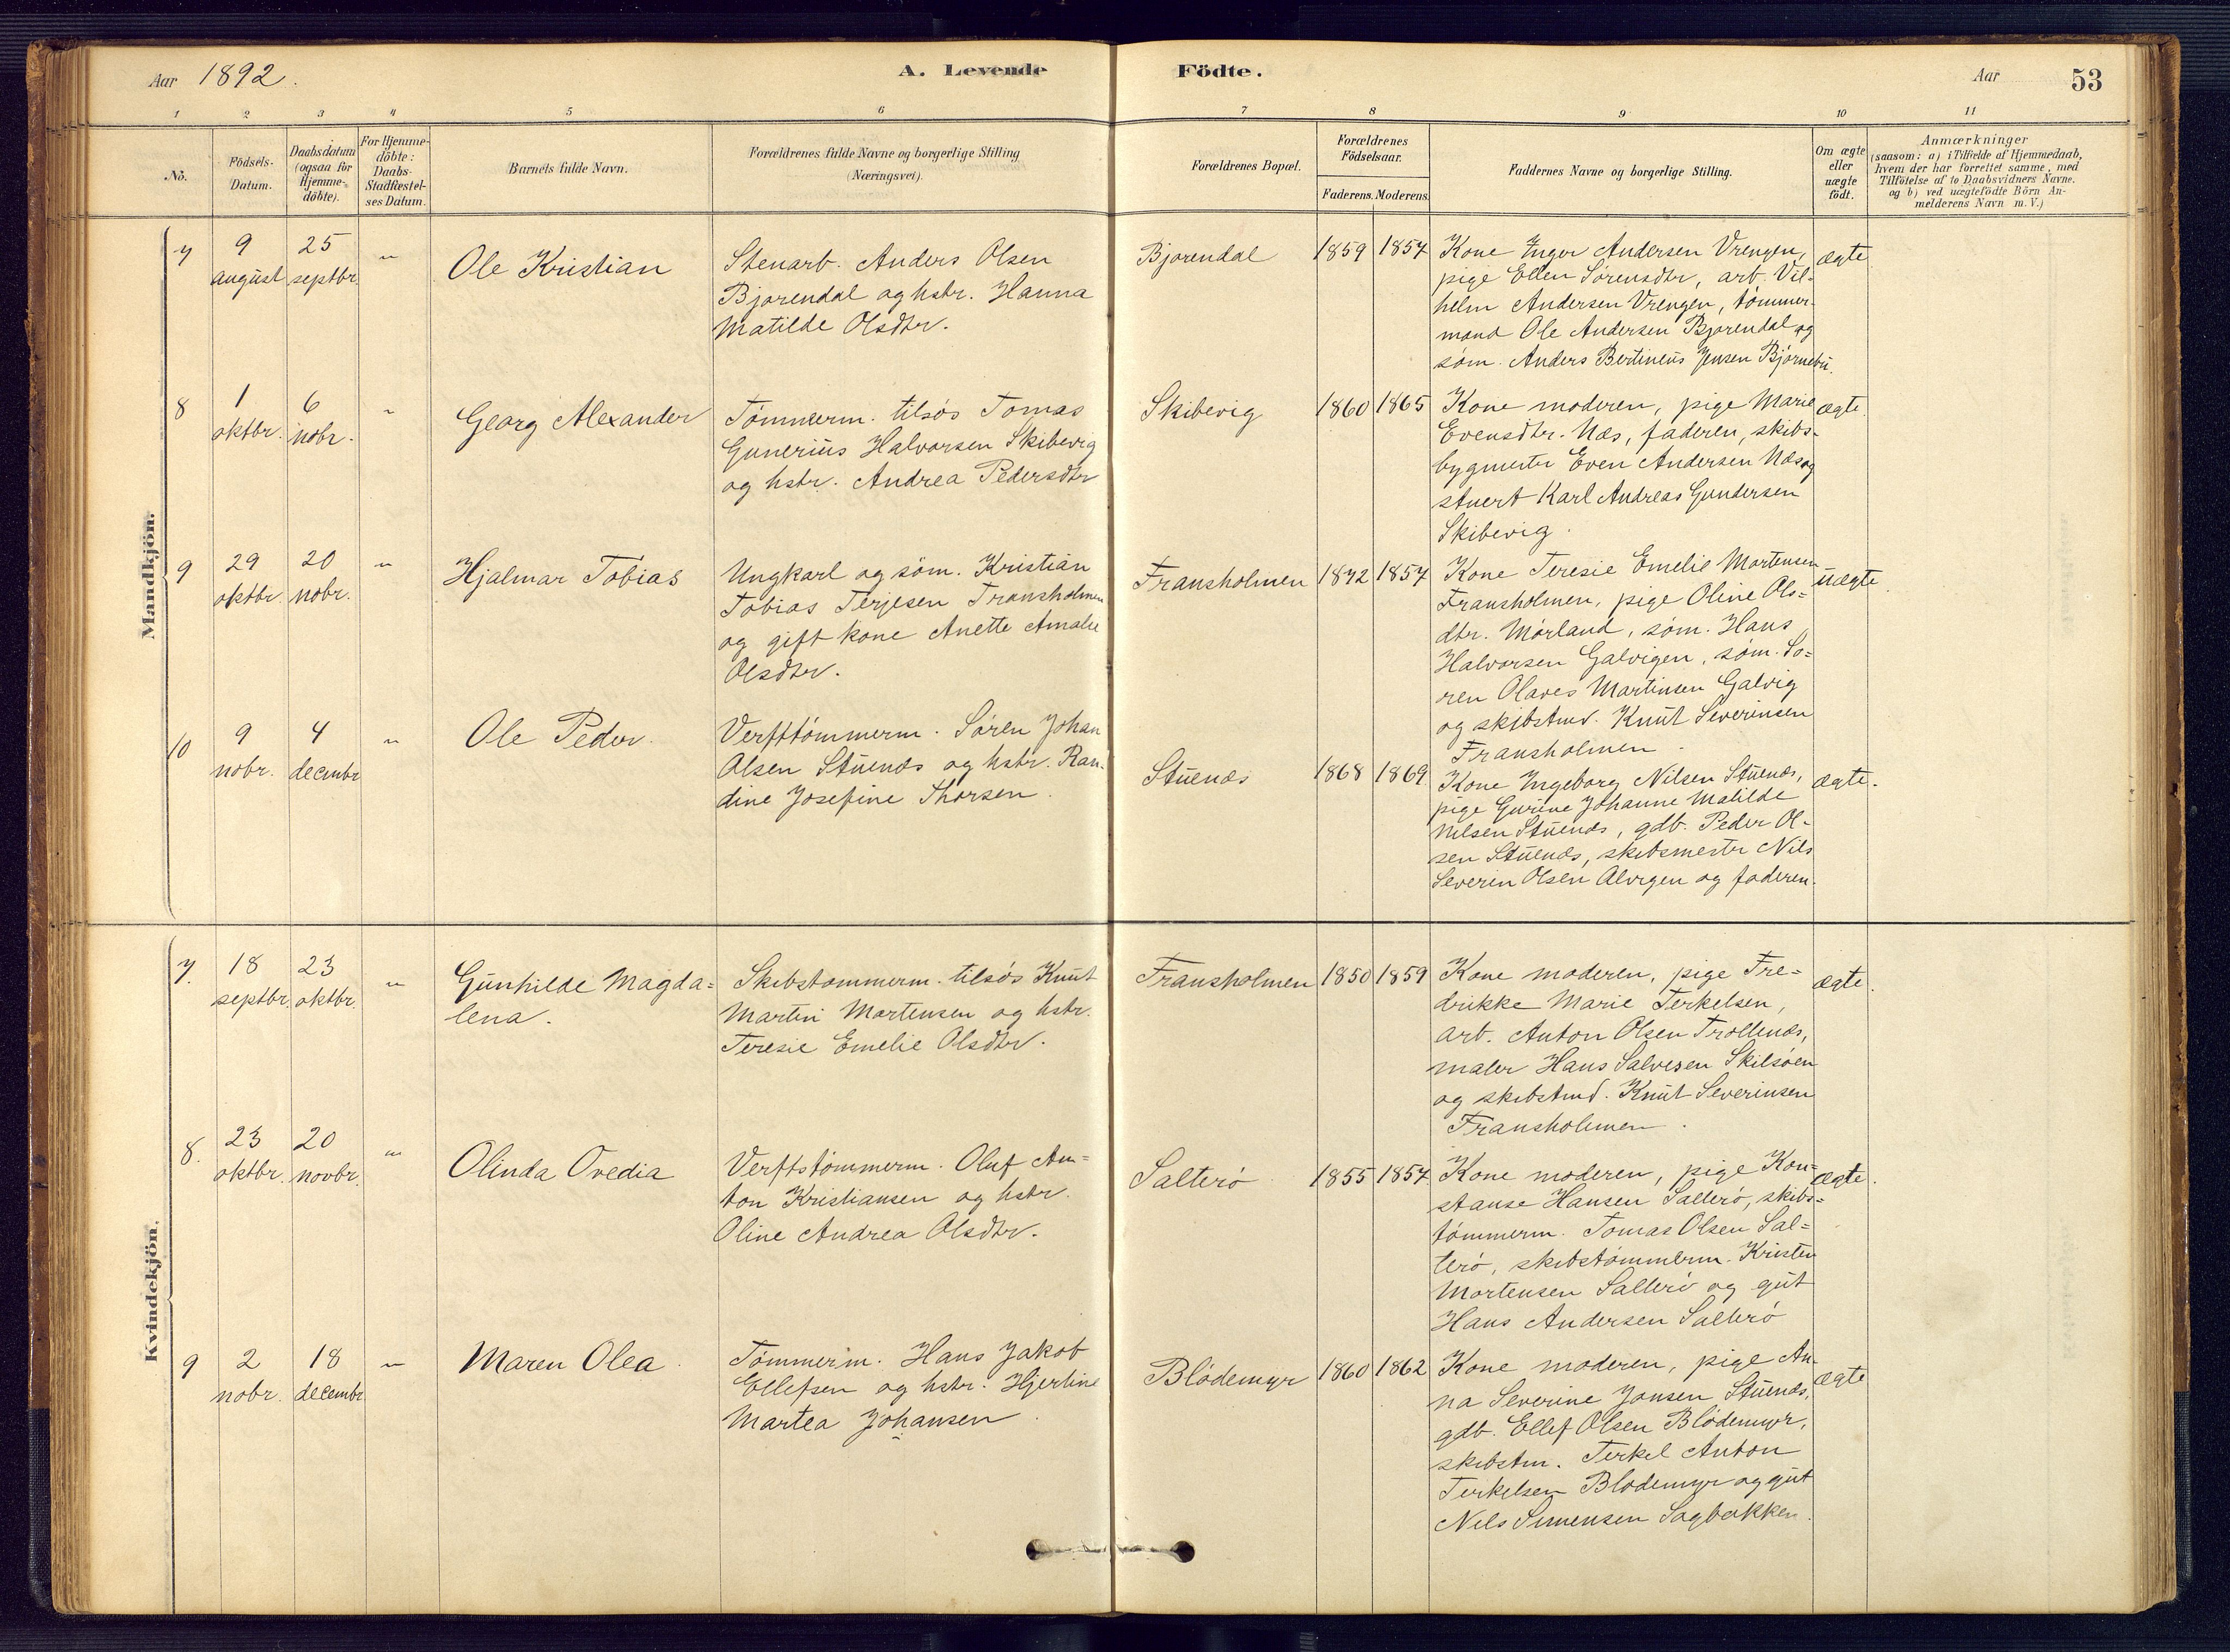 Aar 1892.
A. Levende Födte.
Aar
53
1 2 3 4 5 6 7 8 9 10 11
No.
Födsels-
Datum.
Daabsdatum
(ogsaa for
Hjemme-
döbte).
For Hjemme-
döbte:
Daabs-
Stadfæstel-
ses Datum.
Barnets fulde Navn.
Forældrenes fulde Navne og borgerlige Stilling
(Næringsvei).
Forældrenes Bopæl.
Forældrenes
Födselsaar.
Faderens. Moderens.
Faddernes Navne og borgerlige Stilling.
Om ægte
eller
uægte
födt.
Anmærkninger
(saasom: a) i Tilfælde af Hjemmedaab,
hvem der har forrettet samme, med
Tilföielse af to Daabsvidners Navne.
og b) ved uægtefödte Börn An-
melderens Navn m. V.)
Mandkjön.
7
9
august
25
septbr.
"
Ole Kristian
Stenarb. Anders Olsen
Bjorendal og hstr. Hanna
Matilde Olsdtr.
Bjorendal
1859
1857
Kone Inger Andersen Vrengen,
pige Ellen Sørensdtr, arb. Vil-
helm Andersen Vrengen, tømmer-
mand Ole Andersen Bjorendal og
søm. Anders Bertineus Jensen Bjørnebu.
ægte
8
1
oktbr.
6
nobr.
"
Georg Alexander
Tømmerm. tilsøs Tomas
Gunerius Halvorsen Skibevig
og hstr. Andrea Pedersdtr
Skibevig
1860
1865
Kone moderen, pige Marie
Evensdtr. Næs, faderen, skibs-
bygmester Even Andersen Næs og
stuert Karl Andreas Gundersen
Skibevig.
ægte.
9
29
oktbr.
20
nobr.
"
Hjalmar Tobias
Ungkarl og søm. Kristian
Tobias Terjesen Fransholmen
og gift kone Anette Amalie
Olsdtr.
Fransholmen
1872
1857
Kone Teresie Emelie Mortensen
Fransholmen, pige Oline Ols=
dtr. Mørland, søm. Hans
Halvorsen Galvigen, søm. Sø=
ren Olaves Martinsen Galvig
og skibstmd. Knut Severinsen
Fransholmen.
uægte.
10
9
nobr.
4
decmbr
"
Ole Peder.
Verfttømmerm. Søren Johan
Olsen Stuenæs og hstr. Ran-
dine Josefine Thorsen.
Stuenæs
1868
1869
Kone Ingeborg Nilsen Stuenæs,
pige Gurine Johanne Matilde
Nilsen Stuenæs, gdb. Peder Ol-
sen Stuenæs, skibsmester Nils
Severin Olsen Alvigen og faderen.
ægte.
Kvindekjön.
7.
18
septbr.
23
oktbr.
"
Gunhilde Magda=
lena.
Skibstømmerm. tilsøs Knut
Martin Mortensen og hstr.
Teresie Emelie Olsdtr.
Fransholmen
1850
1859
Kone moderen, pige Fre=
drikke Marie Terkelsen,
arb. Anton Olsen Trollenæs,
maler Hans Salvesen Skilsøen
og skibstmd. Knut Severinsen
Fransholmen.
ægte.
8.
23
oktbr.
20
novbr.
"
Olinda Ovedia
Verftstømmerm. Oluf An=
ton Kristiansen og hstr.
Oline Andrea Olsdtr.
Salterø
1855
1857
Kone moderen, pige Kon=
stanse Hansen Salterø, skibs=
tømmerm. Tomas Olsen Sal=
terø, skibstømmerm. Kristen
Mortensen Salterø og gut
Hans Andersen Salterø
ægte.
9
2
nobr.
18
decembr
"
Maren Olea.
Tømmerm. Hans Jakob
Ellefsen og hstr. Hjertine
Martea Johansen.
Blødemyr
1860
1862
Kone moderen, pige An-
na Severine Jonsen Stuenæs,
gdb. Ellef Olsen Blødemyr,
skibstm. Terkel Anton
Terkelsen Blødemyr og gut
Nils Simensen Sagbakken.
ægte